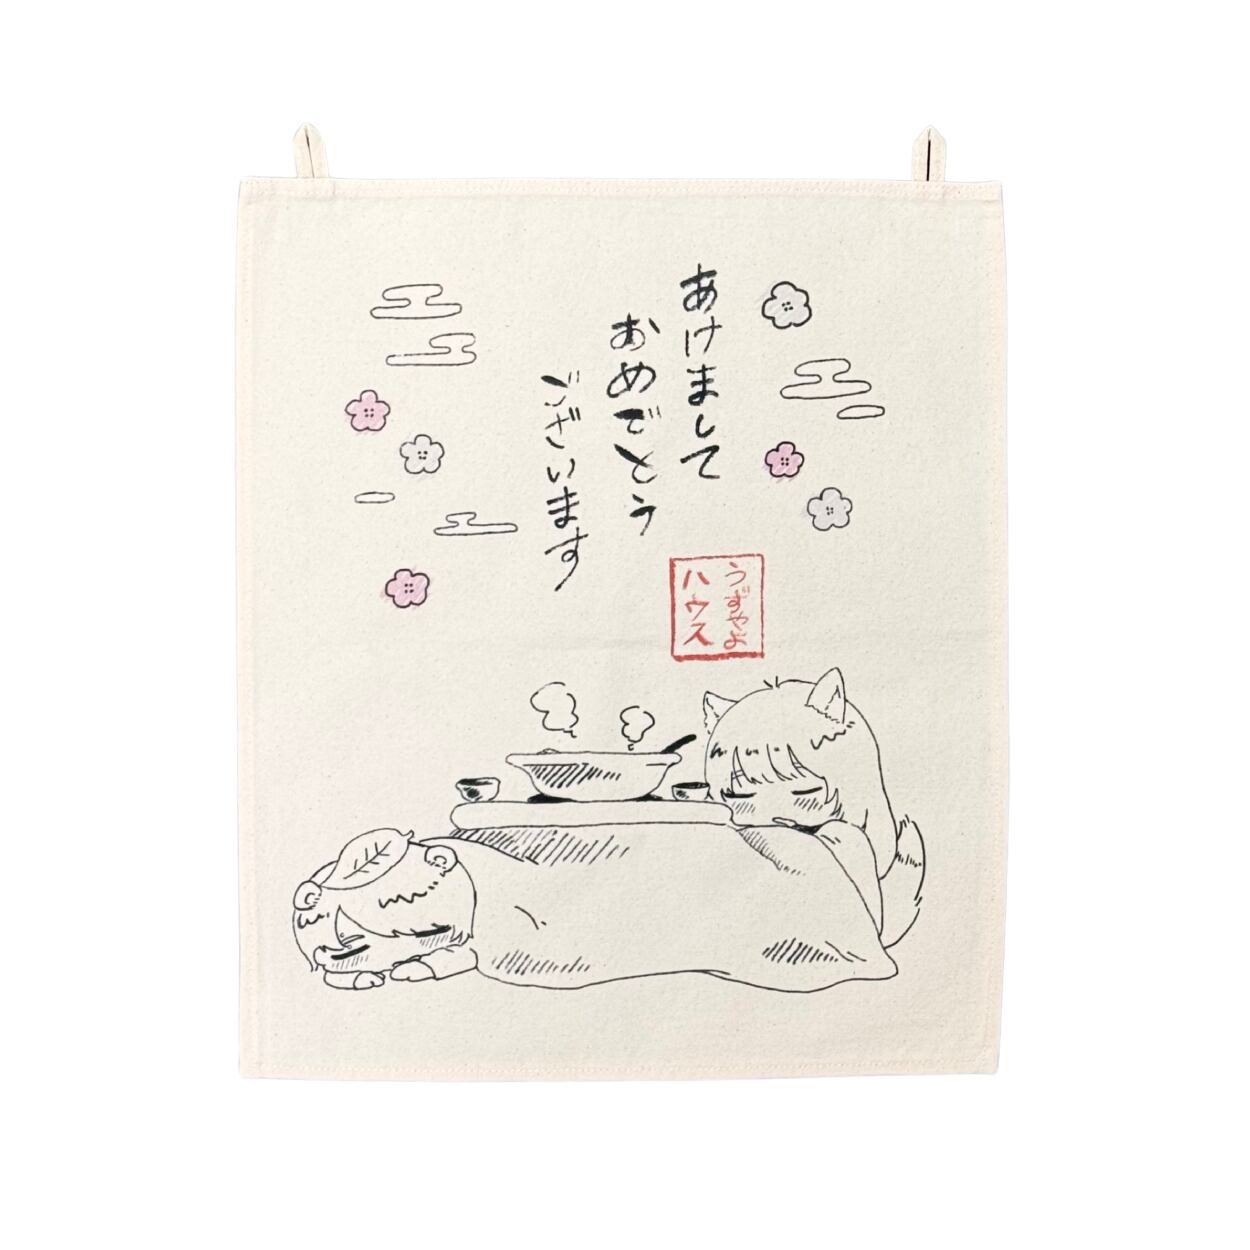 あけまして
おめでとう
ございます
うずやよ
ハウス